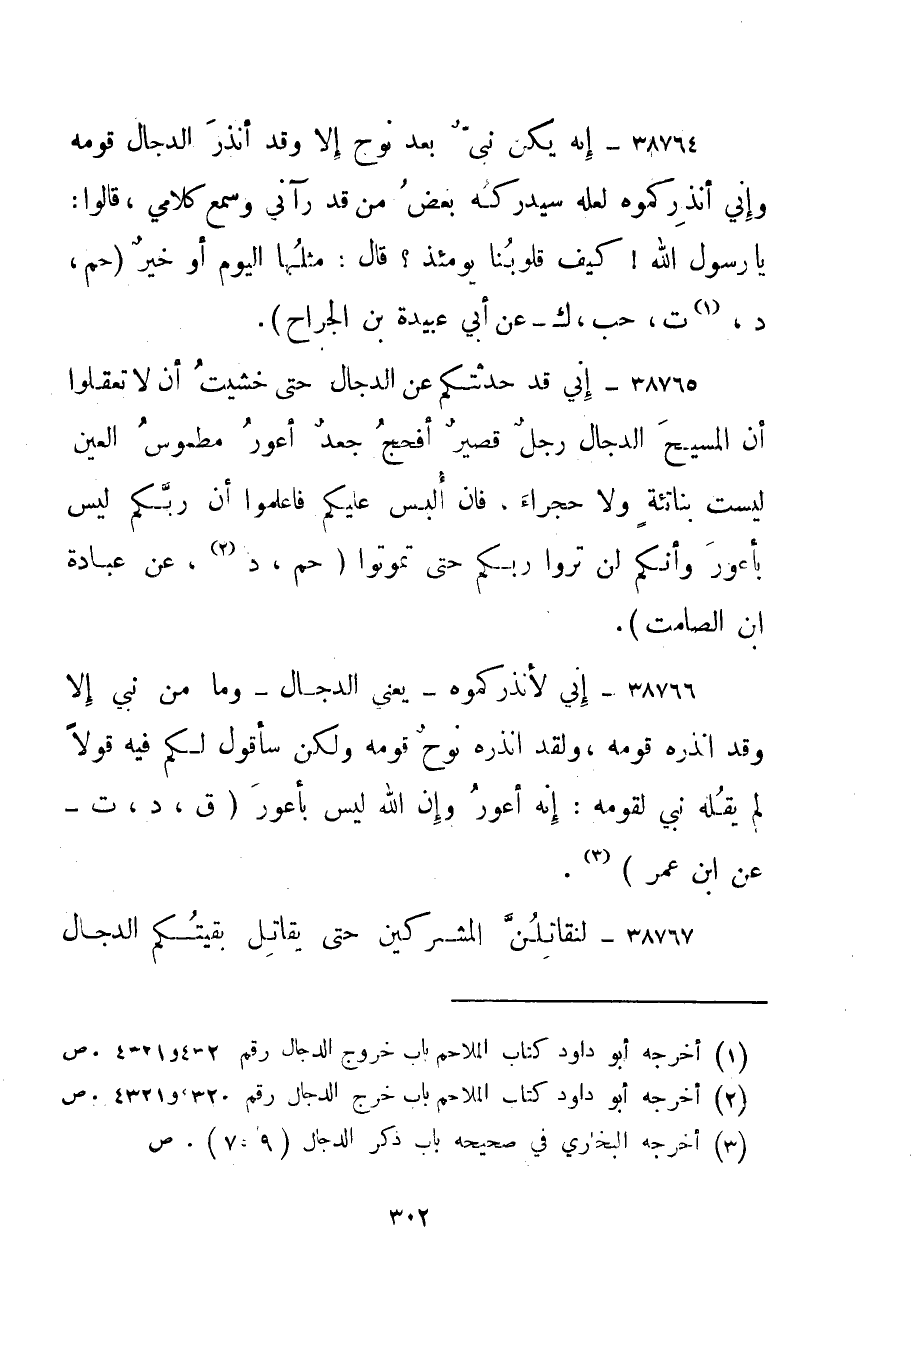 ٣٨٧٦٤ ـ إنه يكن نبيّ ٌ بعد نوح إلا وقد أنذرَ الدجال قومه
وإني أنذِركموه لعله سيدركُه بعضُ من قد رآني وسمع كلامي ، قالوا :
يا رسول الله ! كيف قلوبُنا يومئذ ؟ قال : مثلُها اليوم أو خيرٌ (حم ،
د ، (١) ت ، حب ، ك ـ عن أبي عبيدة بن الجراح) .
٣٨٧٦٥ ـ إني قد حدثتكم عن الدجال حتى خشيتُ أن لا تعقلوا
أن المسيحَ الدجال رجلٌ قصيرٌ أفحجُ جعدٌ أعورُ مطموسُ العين
ليست بناتئةٍ ولا حجراءَ ، فان أُلبس عليكم فاعلموا أن ربَّكم ليس
بأعورَ وأنكم لن تروا ربكم حتى تموتوا ( حم ، د (٢) ، عن عبادة
ابن الصامت ) .
٣٨٧٦٦ ـ إني لأنذركموه ـ يعني الدجال ـ وما من نبي إلا
وقد انذره قومه ، ولقد انذره نوحٌ قومه ولكن سأقول لكم فيه قولاً
لم يقُله نبي لقومه : إنه أعورُ وإن الله ليس بأعورَ ( ق ، د ، ت ـ
عن ابن عمر ) (٣) .
٣٨٧٦٧ ـ لنقاتِلُنَّ المشركين حتى يقاتِل بقيتُكم الدجال
(١) أخرجه أبو داود كتاب الملاحم باب خروج الدجال رقم . ص
(٢) أخرجه أبو داود كتاب الملاحم باب خرج الدجال رقم ٤٣٢٠ و ٤٣٢١ . ص
(٣) أخرجه البخاري في صحيحه باب ذكر الدجال . ص
٣٠٢